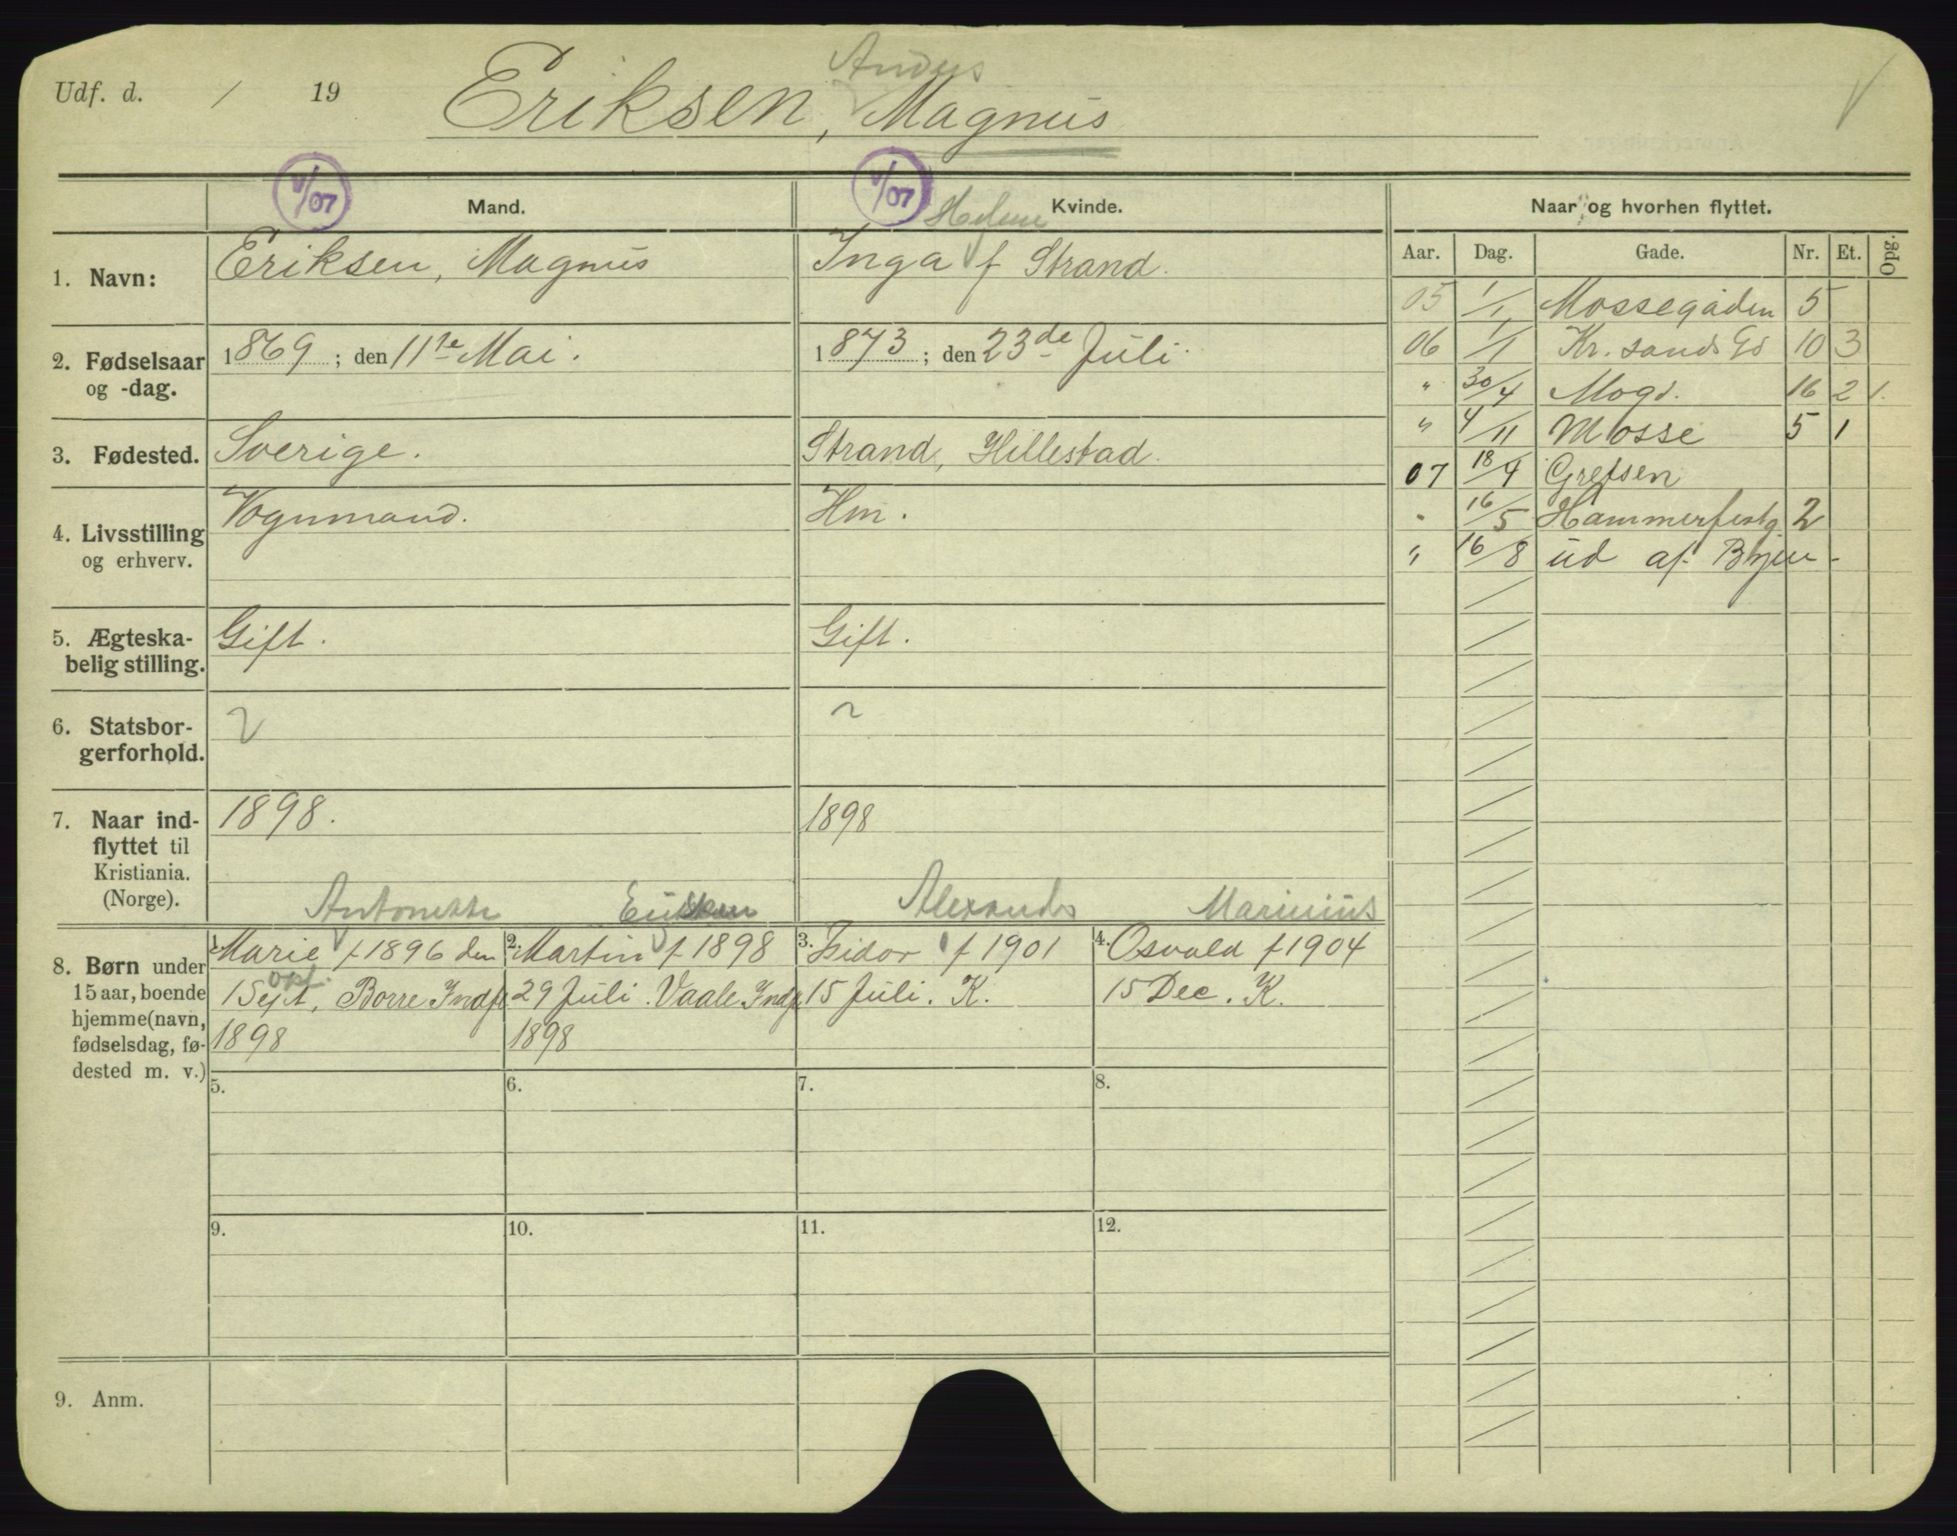 Udf. d. / 19
Anders
Eriksen, Magnus
V/07 V/07
Mand. Kvinde. Naar og hvorhen flyttet.
Helene
Aar. Dag. Gade. Nr. Et. Opg.
1. Navn: Eriksen, Magnus
Inga f Strand.
2. Fødselsaar og -dag.
1869; den 11te Mai.
1873; den 23de Juli.
3. Fødested. Sverige.
Strand, Hillestad.
4. Livsstilling og erhverv.
Vognmand.
Hm.
5. Ægteska-
belig stilling.
Gift.
Gift.
6. Statsbor-
gerforhold.
7. Naar ind-
flyttet til
Kristiania.
(Norge).
1898.
1898
05 1/1 Mossegaden 5
06 1/1 Kr. sands Gd 10 3
" 30/4 Mogt. 16 2 1.
" 4/11 Mosse 5 1
07 18/4 Grefsen
" 16/5 Hammerfestg 2
" 16/8 ud af Byen -
8. Børn under
15 aar, boende
hjemme (navn,
fødselsdag, fø-
dested m. v.)
Antonette
1. Marie f 1896 den
1 Sept, Borre Indfl
1898
2. Martin f 1898
29 Juli. Vaale Indfl
1898
Alexander
3. Isidor f 1901
15 Juli. K.
Marinius
4. Osvald f 1904
15 Dec. K.
5. 6. 7. 8.
9. 10. 11. 12.
9. Anm.